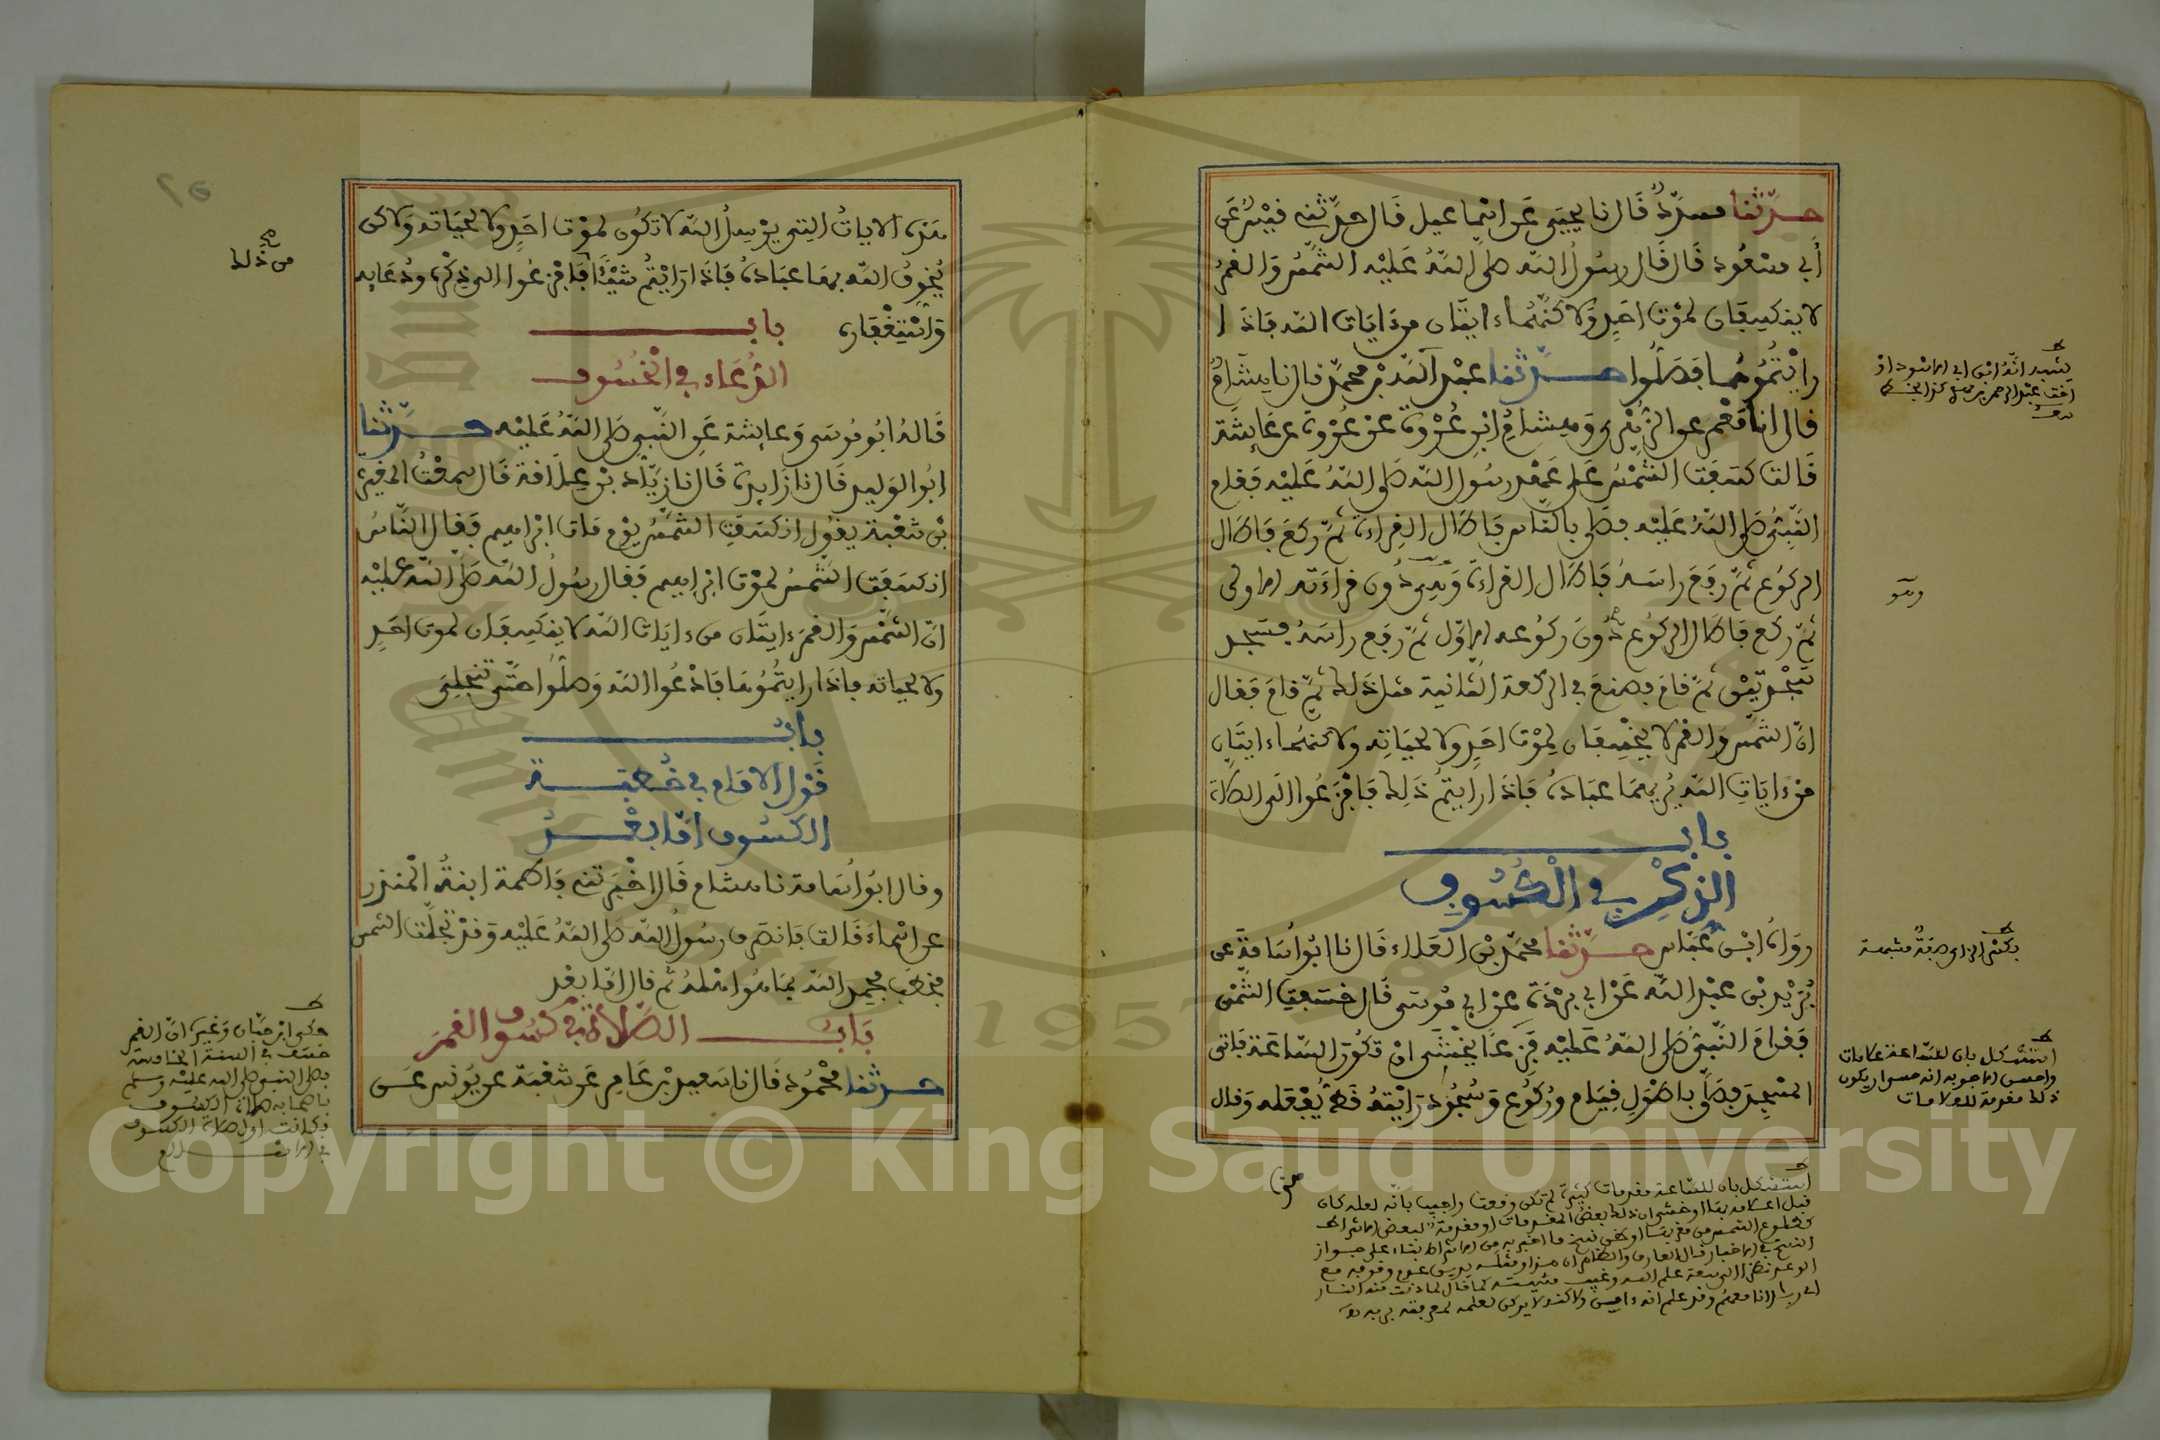 حدثنا مسدد قال نا يحيى عن اسماعيل قال حدثني قيس عن
أبي مسعود قال قال رسول الله صلى الله عليه الشمس والقمر
لا ينكسفان لموت احد ولاكنهما ءايتان من ءايات الله فاذا
رايتموهما فصلوا حدثنا عبد الله بن محمد قال نا هشام
قال انا معمر عن الزهري وهشام ابن عروة عن عروة عن عايشة
قالت كسفت الشمس على عهد رسول الله صلى الله عليه فقام
النبي صلى الله عليه فصلى بالناس فاطال القراءة ثم ركع فاطال
الركوع ثم رفع راسه فاطال القراءة وهي دون قراءته الاولى
ثم ركع فاطال الركوع دون ركوعه الاول ثم رفع راسه فسجد
سجدتين ثم قام فصنع في الركعة الثانية مثل ذلك ثم قام فقال
ان الشمس والقمر لا يخسفان لموت احد ولا لحياته ولاكنهما ءايتان
من ءايات الله يريهما عباده فاذا رايتم ذلك فافزعوا الى الصلاة
باب
الذكر في الكسوف
رواه ابن عباس حدثنا محمد بن العلاء قال نا ابو اسامة عن
بريد بن عبد الله عن ابي بردة عن ابي موسى قال خسفت الشمس
فقام النبي صلى الله عليه فزعا يخشى ان تكون الساعة فاتى
المسجد فصلى باطول قيام وركوع وسجود رايته قط يفعله وقال
بكسر الزاي صفة مشبهة
استشكل بان للساعة علامات
واحسن الاجوبة انه
ذلك مقدمة للعلامات
استشكل بان للساعة مقدمات كثيرة لم تكن وقعت واجيب بانه لعله كان
هذه الايات التي يرسل الله لا تكون لموت احد ولا لحياته ولاكن
يخوف الله بها عباده فاذا رايتم شيئا فافزعوا الى ذكره ودعايه
واستغفاره باب
الدعاء في الخسوف
قاله ابو موسى وعايشة عن النبي صلى الله عليه حدثنا
ابو الوليد قال نا زايدة قال نا زياد بن علاقة قال سمعت المغيرة
بن شعبة يقول انكسفت الشمس يوم مات ابراهيم فقال الناس
انكسفت الشمس لموت ابراهيم فقال رسول الله صلى الله عليه
ان الشمس والقمر ءايتان من ءايات الله لا ينكسفان لموت احد
ولا لحياته فاذا رايتموها فادعوا الله وصلوا حتى تنجلي
باب
قول الامام في خطبة
الكسوف اما بعد
وقال ابو اسامة نا هشام قال اخبرتني فاطمة ابنة المنذر
عن اسماء قالت فانصرف رسول الله صلى الله عليه وقد تجلت الشمس
فخطب فحمد الله بما هو اهله ثم قال اما بعد
باب الصلاة في كسوف القمر
حدثنا محمود قال نا سعيد بن عامر عن شعبة عن يونس عن
من ذلك
حكى ابن حبان وغيره ان القمر
خسف في السنة الخامسة
فصلى النبي صلى الله عليه وسلم
باصحابه صلاة الكسوف
فكانت اول صلاة الكسوف
في الاسلام
٢٥
Copyright © King Saud University
1957